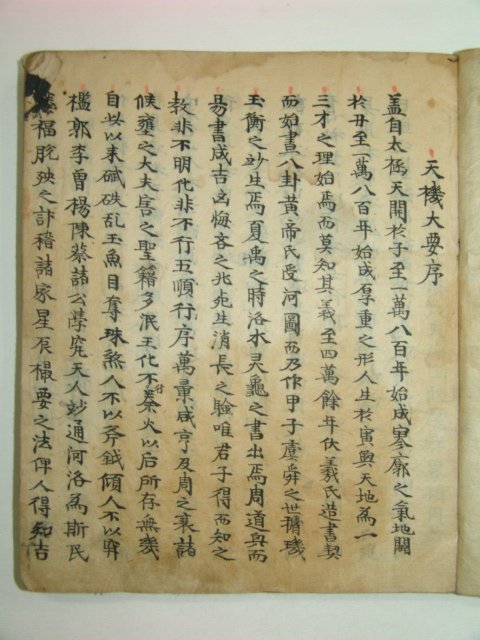 天機大要序
盖自太極天開於子至一萬八百年始成寥廓之氣地闢
於丑至一萬八百年始成厚重之形人生於寅與天地為一
三才之理始焉而莫知其義至四萬餘年伏羲氏造書契
而始畫八卦黃帝氏受河圖而乃作甲子虞舜之世璿璣
玉衡之妙生焉夏禹之時洛水灵龜之書出焉周道興而
易書成吉凶悔吝之兆先生消長之驗唯君子得而知之
教非不明化非不行五順行序萬彙咸亨及周之衰諸
侯壅之大夫害之聖籍多泯王化不行秦火以后所存無幾
自以以来碔砆乱玉魚目奪珠煞人不以斧鉞傾人不以穽
檻郭李曾楊陳蔡諸公學究天人妙通河洛為斯民
福脫殃之計稽諸家星辰撮要之法俾人得知吉